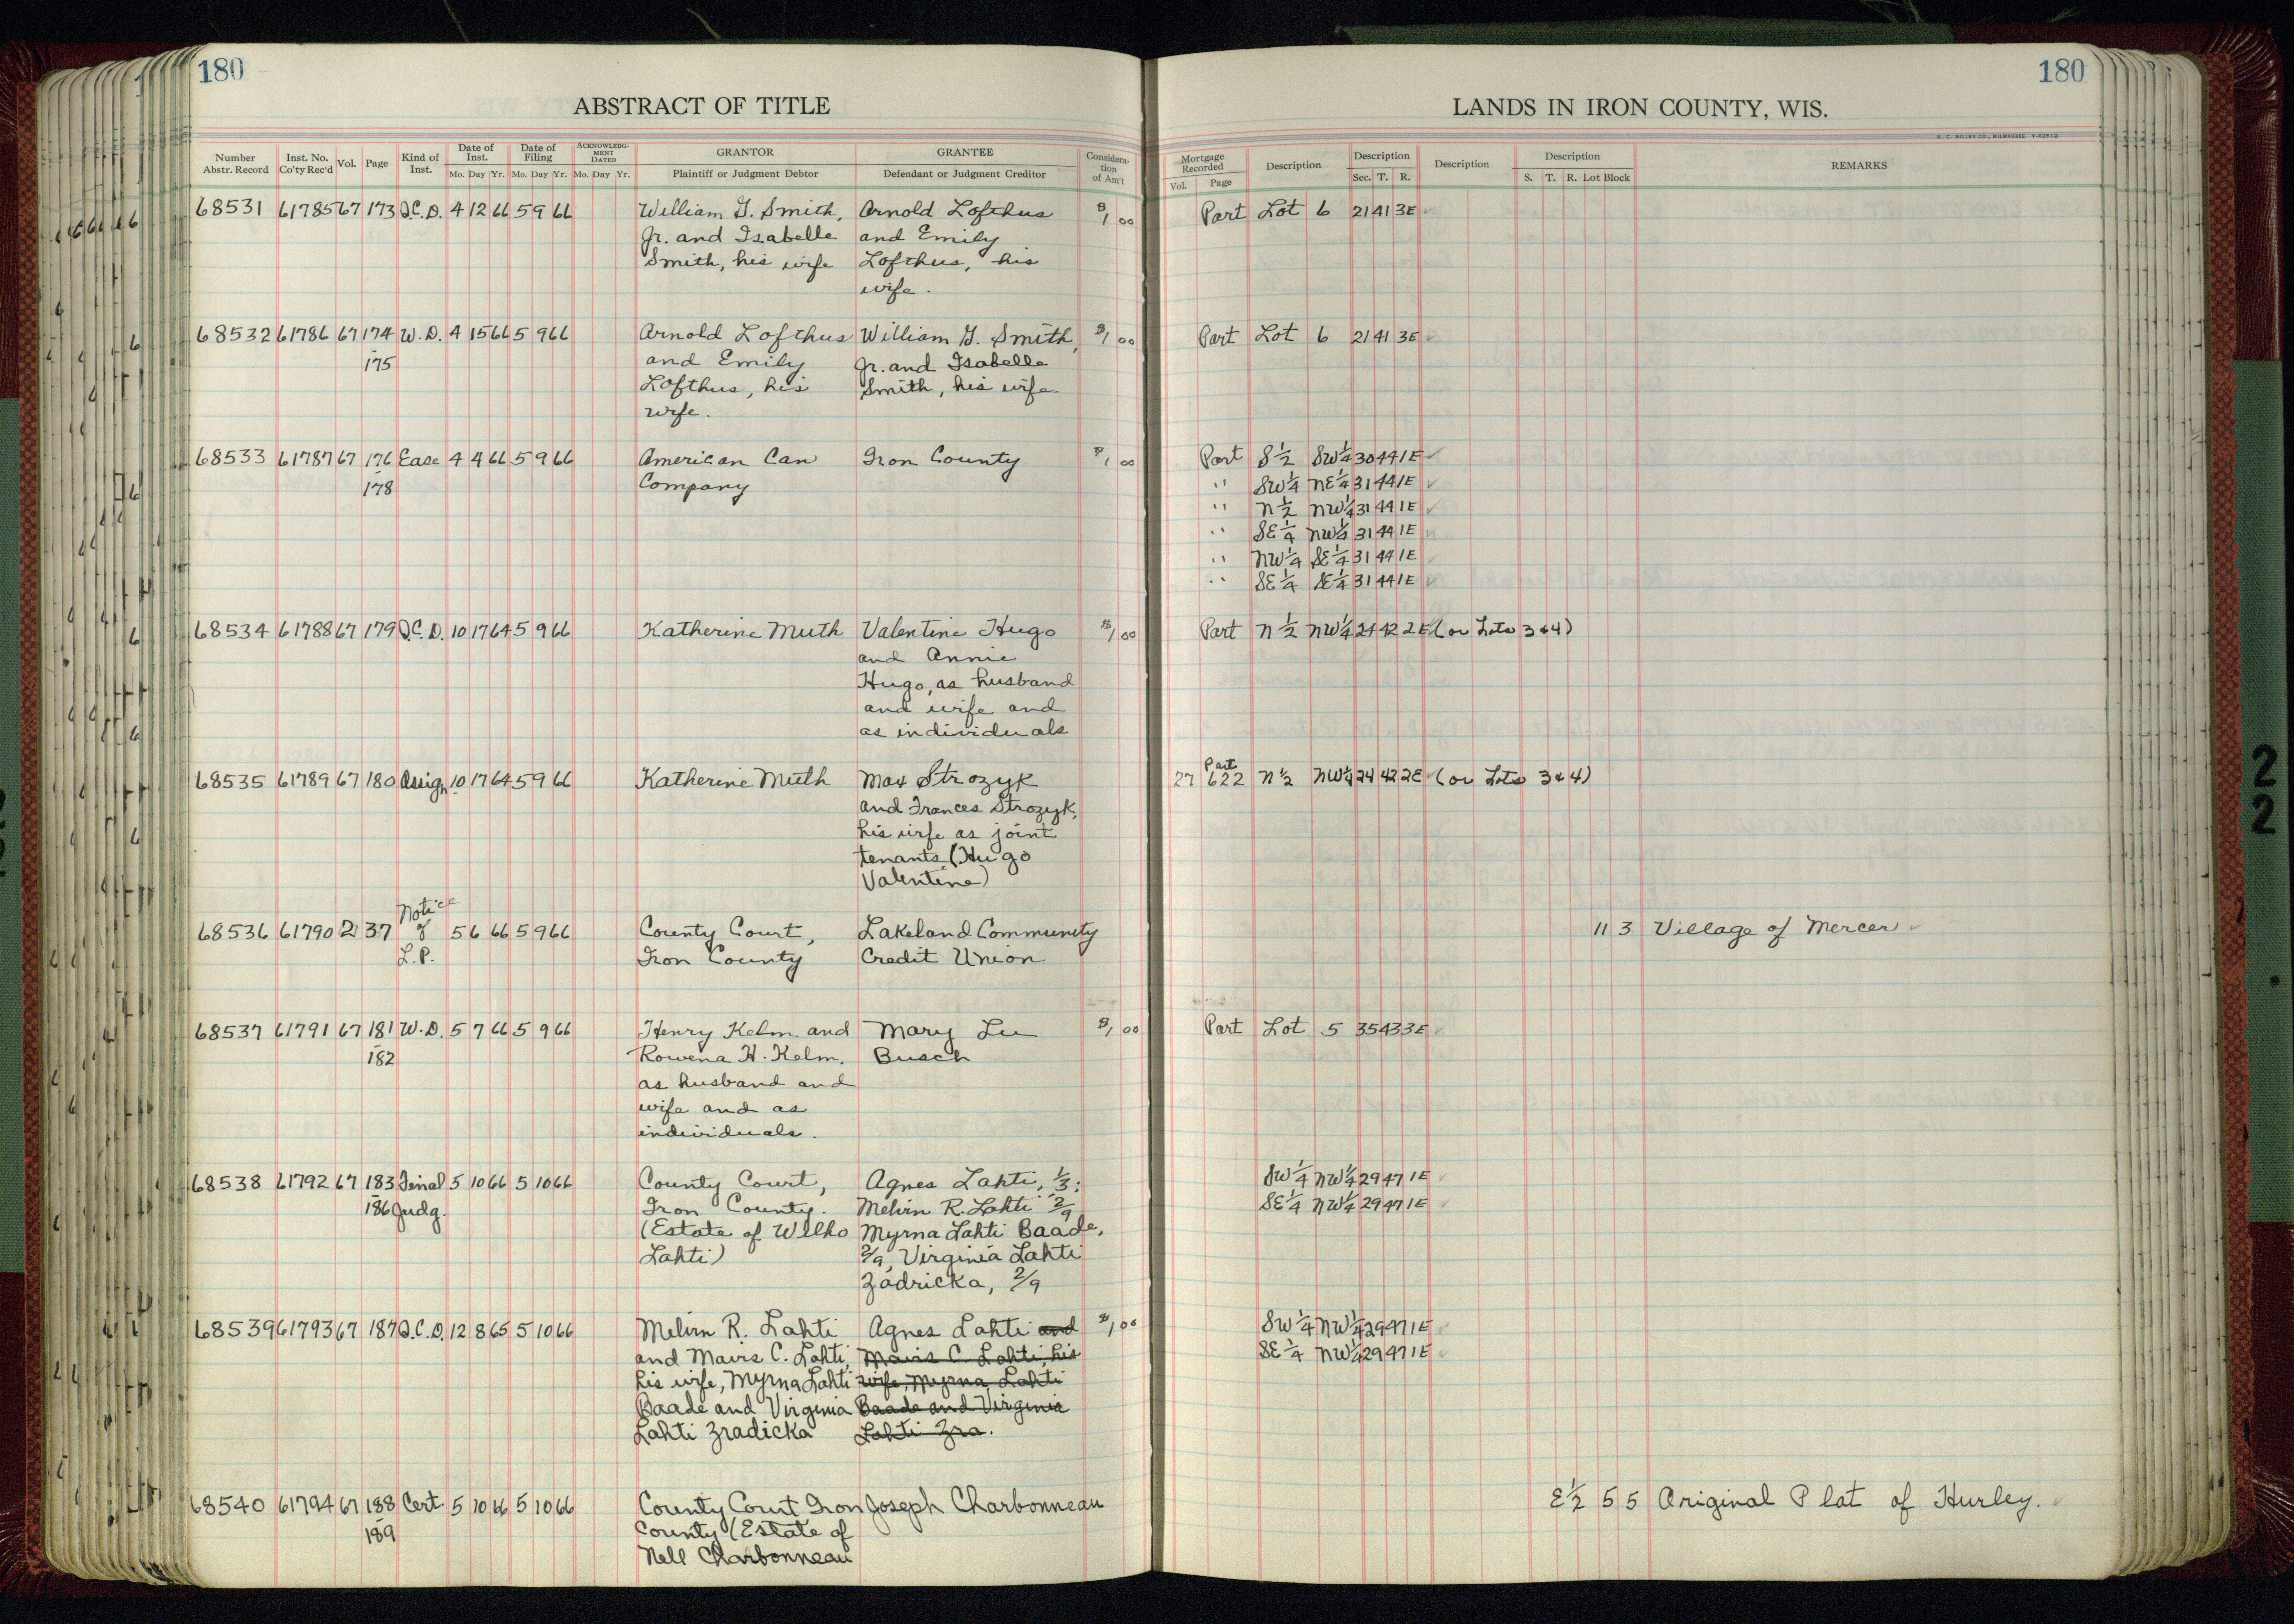 180
180
ABSTRACT OF TITLE
LANDS IN IRON COUNTY, WIS.
H. C. MILLER CO., MILWAUKEE
Number Abstr. Record Inst. No. Co'ty Rec'd Vol. Page Kind of Inst. Date of Inst. Mo. Day Yr. Date of Filing Mo. Day Yr. ACKNOWLEDGMENT DATED Mo. Day Yr. GRANTOR Plaintiff or Judgment Debtor GRANTEE Defendant or Judgment Creditor Consideration of Am't
Mortgage Recorded Vol. Page Description Description Sec. T. R. Description Description S. T. R. Lot Block REMARKS
68531 61785 67 173 Q.C.D. 4 12 66 5 9 66 William G. Smith, Arnold Lofthus $1 00 Part Lot 6 21 41 3E ✓
Jr. and Isabelle and Emily
Smith, his wife Lofthus, his
wife.
68532 61786 67 174 W.D. 4 15 66 5 9 66 Arnold Lofthus William G. Smith, $1 00 Part Lot 6 21 41 3E ✓
175 and Emily Jr. and Isabelle
Lofthus, his Smith, his wife.
wife.
68533 61787 67 176 Ease 4 4 66 5 9 66 American Can Iron County $1 00 Part S½ SW¼ 30 44 1E ✓
178 Company " SW¼ NE¼ 31 44 1E ✓
" N½ NW¼ 31 44 1E ✓
" SE¼ NW¼ 31 44 1E ✓
" NW¼ SE¼ 31 44 1E ✓
" SE¼ SE¼ 31 44 1E ✓
68534 61788 67 179 Q.C.D. 10 17 64 5 9 66 Katherine Muth Valentine Hugo $1 00 Part N½ NW¼ 24 42 2E ✓ (or Lots 3 & 4)
and Annie
Hugo, as husband
and wife and
as individuals
68535 61789 67 180 Assign. 10 17 64 5 9 66 Katherine Muth Max Strozyk 27 Part 622 N½ NW¼ 24 42 2E ✓ (or Lots 3 & 4)
and Frances Strozyk,
his wife as joint
tenants (Hugo
Valentine)
68536 61790 2 37 Notice of L.P. 5 6 66 5 9 66 County Court, Lakeland Community 11 3 Village of Mercer ✓
Iron County Credit Union
68537 61791 67 181 W.D. 5 7 66 5 9 66 Henry Kelm and Mary Lu $1 00 Part Lot 5 35 43 3E ✓
182 Rowena H. Kelm, Busch
as husband and
wife and as
individuals.
68538 61792 67 183 Final 5 10 66 5 10 66 County Court, Agnes Lahti, 1/3; SW¼ NW¼ 29 47 1E ✓
186 Judg. Iron County. Melvin R. Lahti 2/9 SE¼ NW¼ 29 47 1E ✓
(Estate of Wilho Myrna Lahti Baade,
Lahti) 2/9, Virginia Lahti
Zadricka, 2/9
68539 61793 67 187 Q.C.D. 12 8 65 5 10 66 Melvin R. Lahti Agnes Lahti and $1 00 SW¼ NW¼ 29 47 1E ✓
and Mavis C. Lahti, Mavis C. Lahti, his SE¼ NW¼ 29 47 1E ✓
his wife, Myrna Lahti wife, Myrna Lahti
Baade and Virginia Baade and Virginia
Lahti Zradicka Lahti Zra.
68540 61794 67 188 Cert. 5 10 66 5 10 66 County Court, Iron Joseph Charbonneau E½ 5 5 Original Plat of Hurley. ✓
189 County (Estate of
Nell Charbonneau